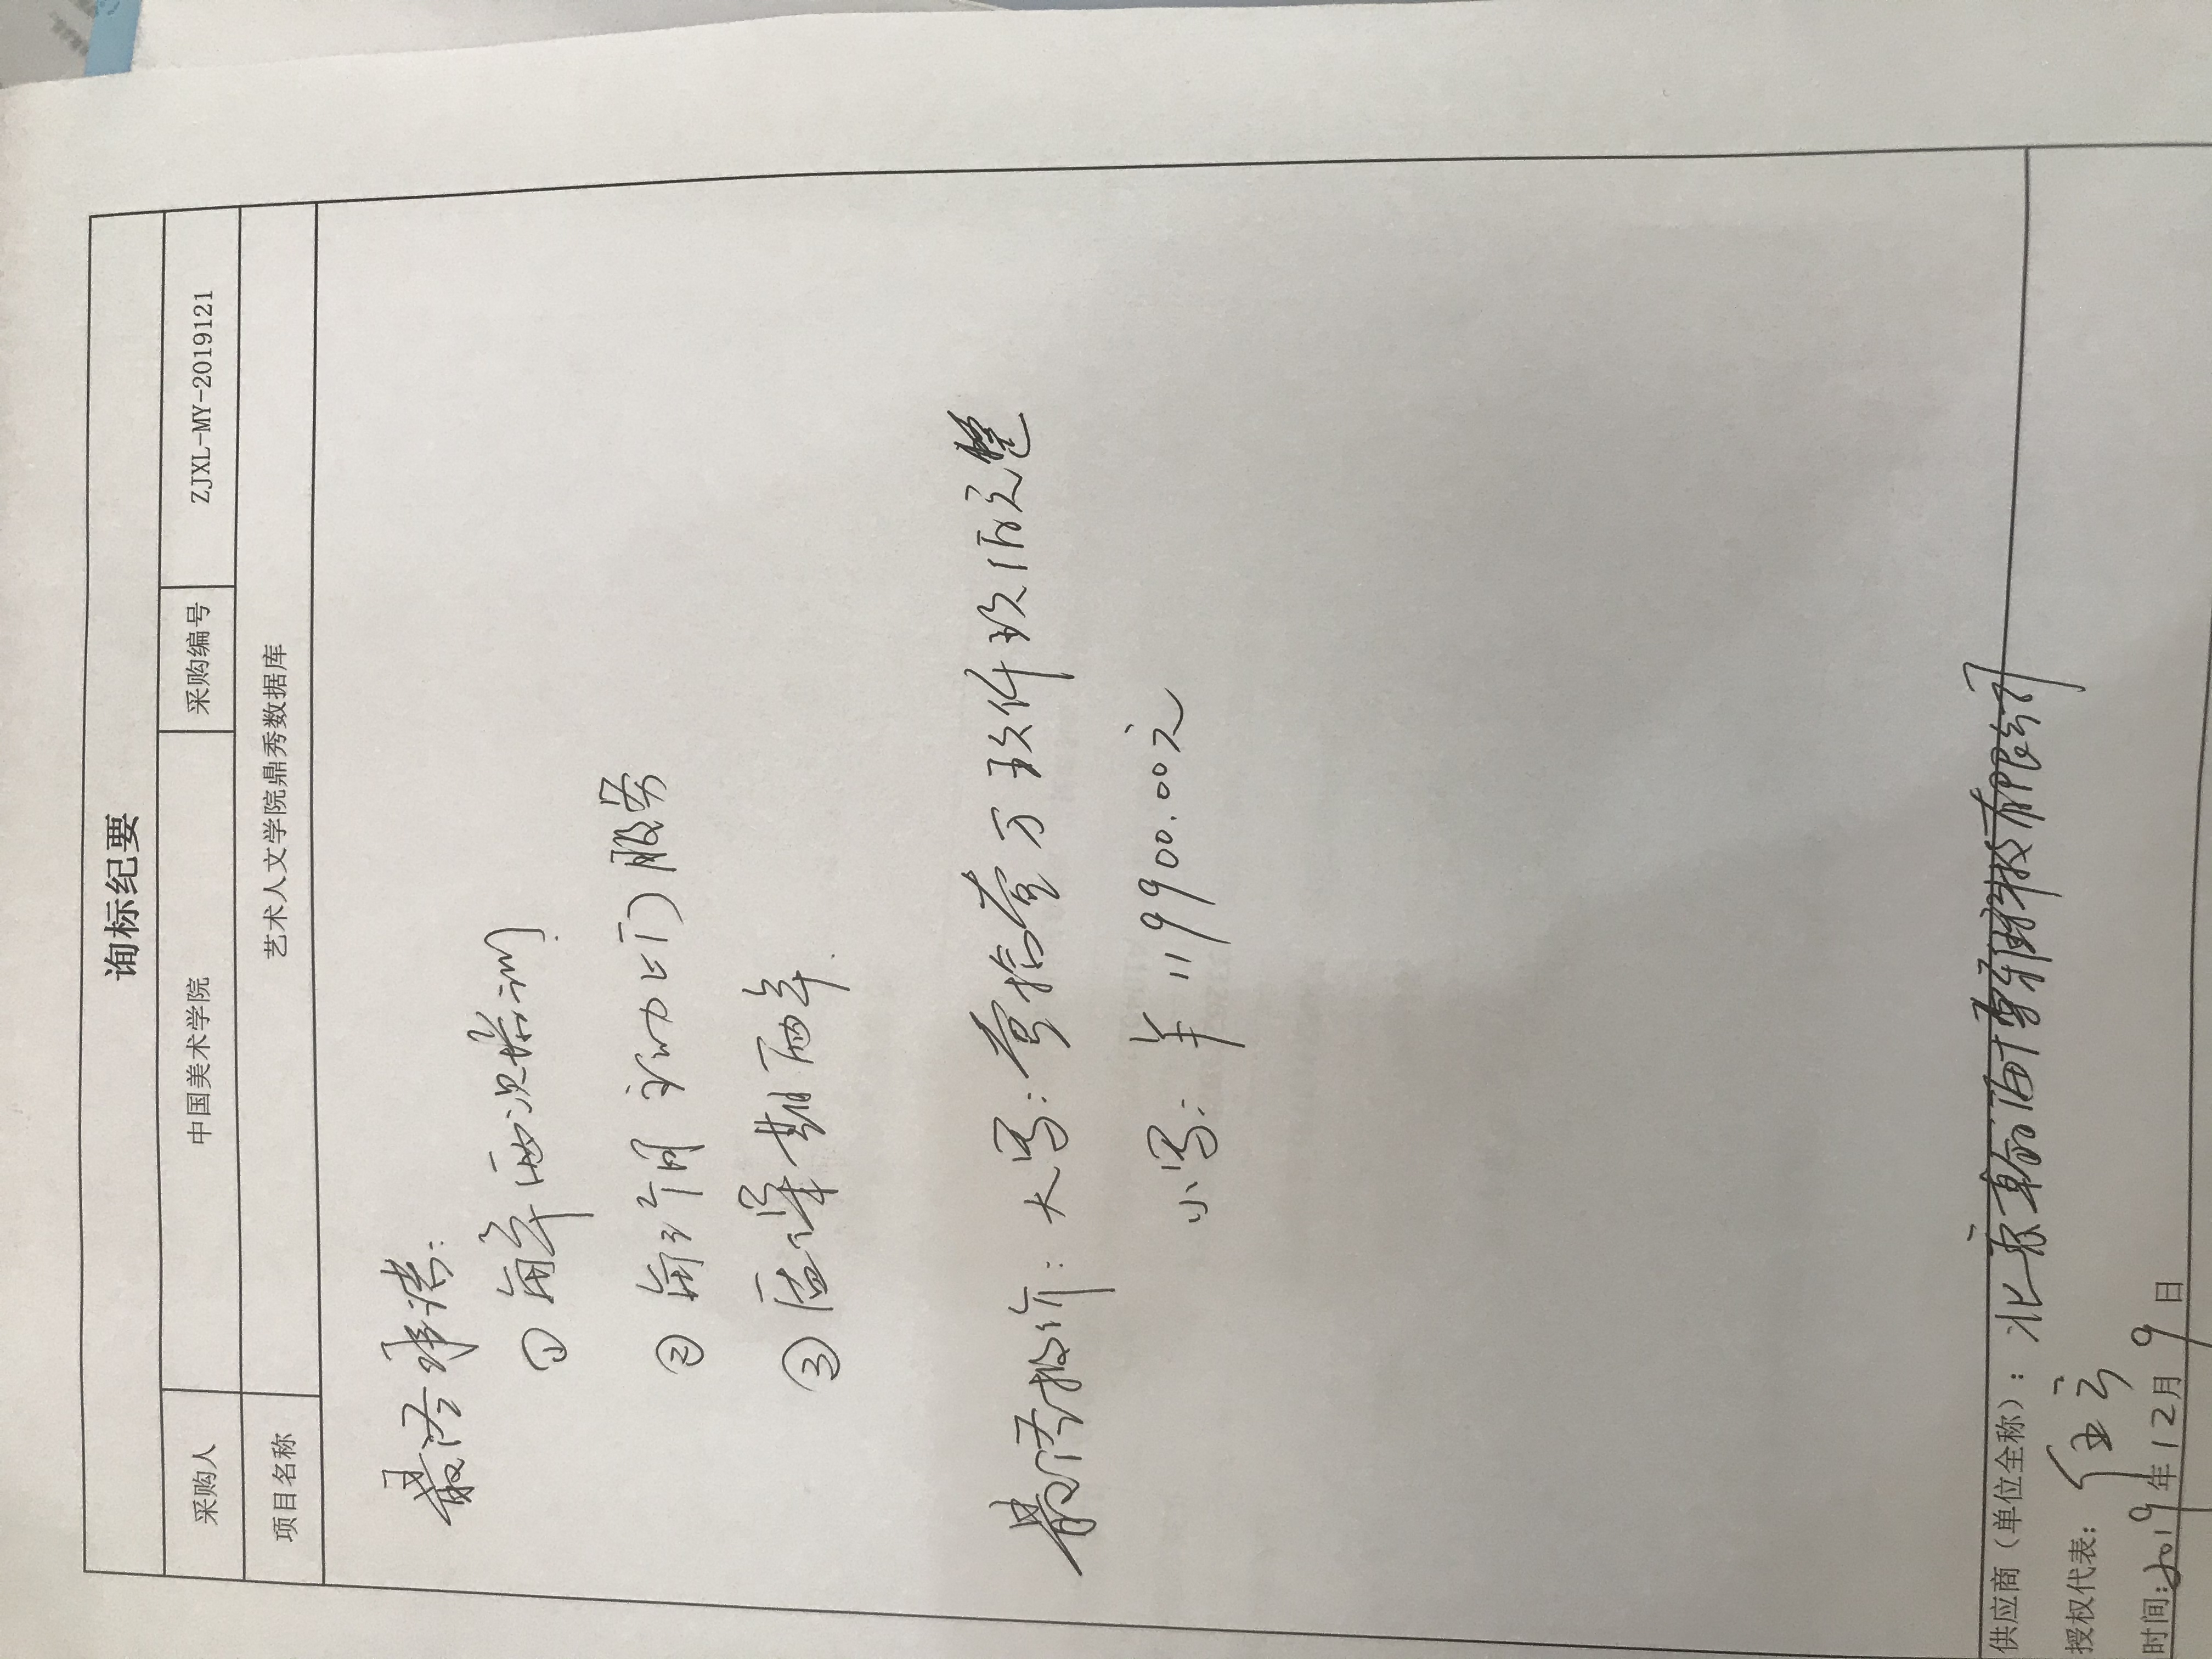 询标纪要
采购人 中国美术学院 采购编号 ZJXL-MY-2019121
项目名称 艺术人文学院鼎秀数据库
最终承诺:
① 每年两次培训.
② 每3个月主动上门服务
③ 质保期两年.
最终报价: 大写: 壹拾壹万玖仟玖佰元整
小写: ¥ 119900.00元
供应商（单位全称）: 北京翰海博雅科技有限公司
授权代表:
时间: 2019年12月9日